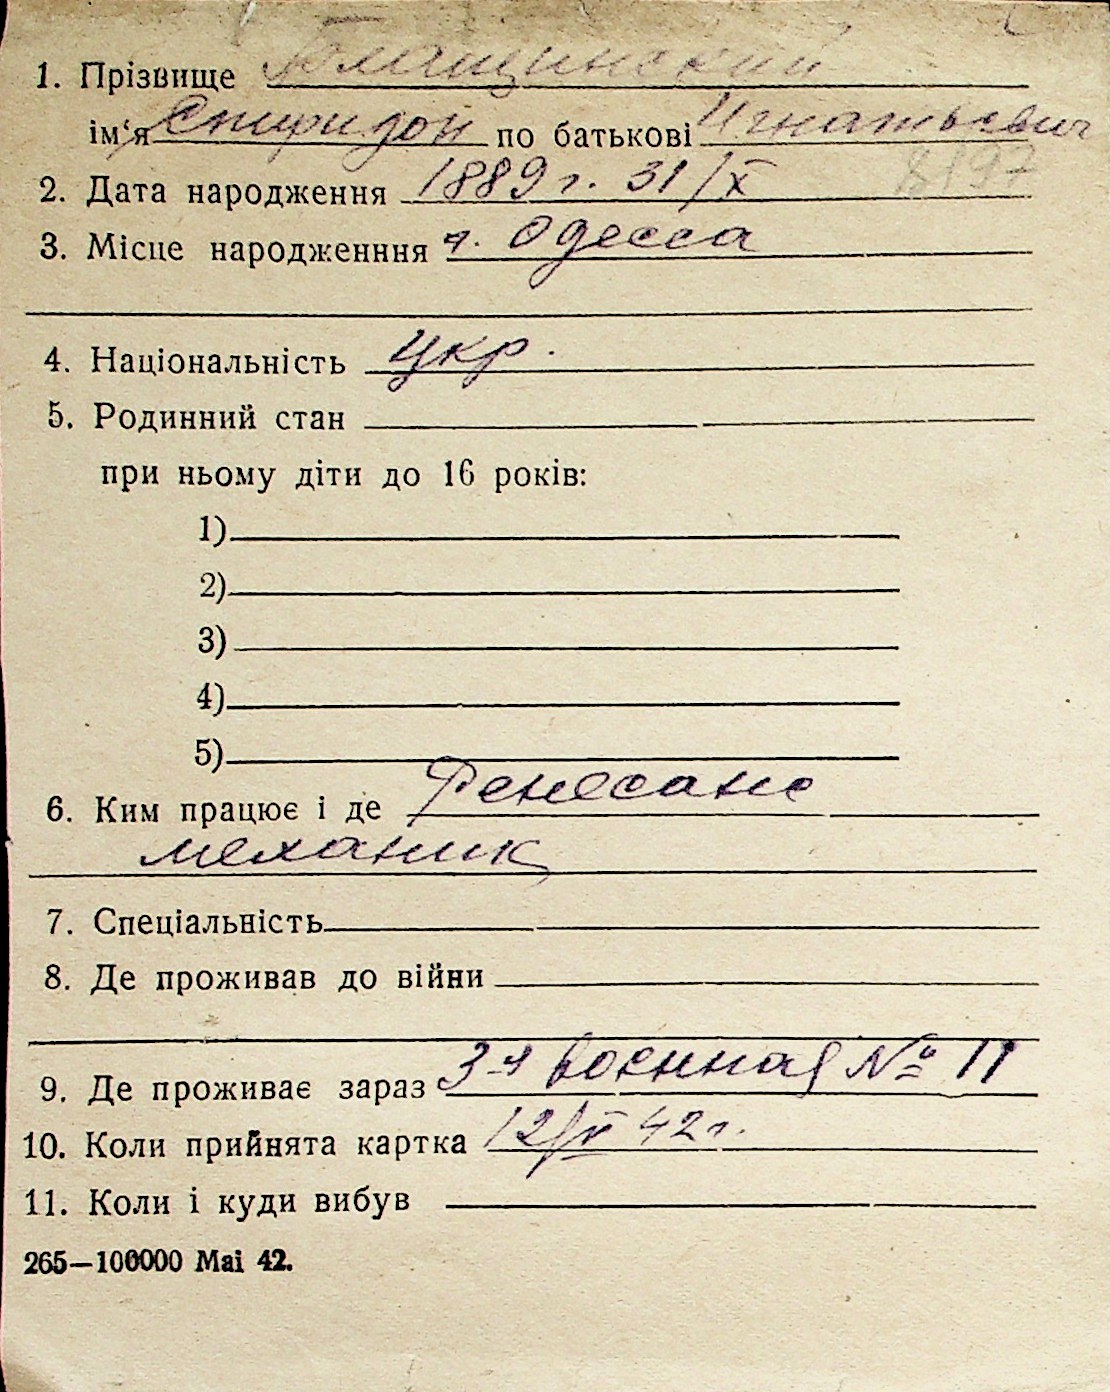 1. Прізвище
ім‘я Спиридон по батькові Игнатьевич
2. Дата народження 1889 г. 31/X 8197
3. Місце народженння г. Одесса
4. Національність Укр.
5. Родинний стан
при ньому діти до 16 років:
1)
2)
3)
4)
5)
6. Ким працює і де Ренесанс
механик
7. Спеціальність
8. Де проживав до війни
9. Де проживає зараз 3-я военная № 11
10. Коли прийнята картка 12/V 42 г.
11. Коли і куди вибув
265—100000 Mai 42.